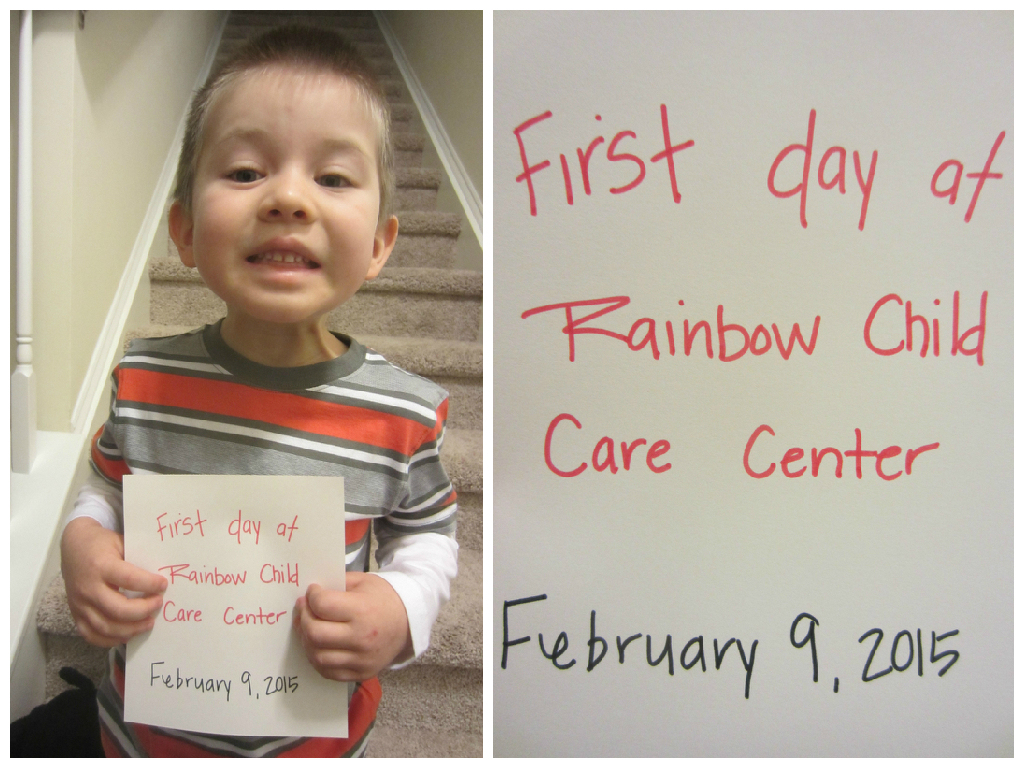 First day at
Rainbow Child
Care Center
February 9, 2015
First day at
Rainbow Child
Care Center
February 9, 2015